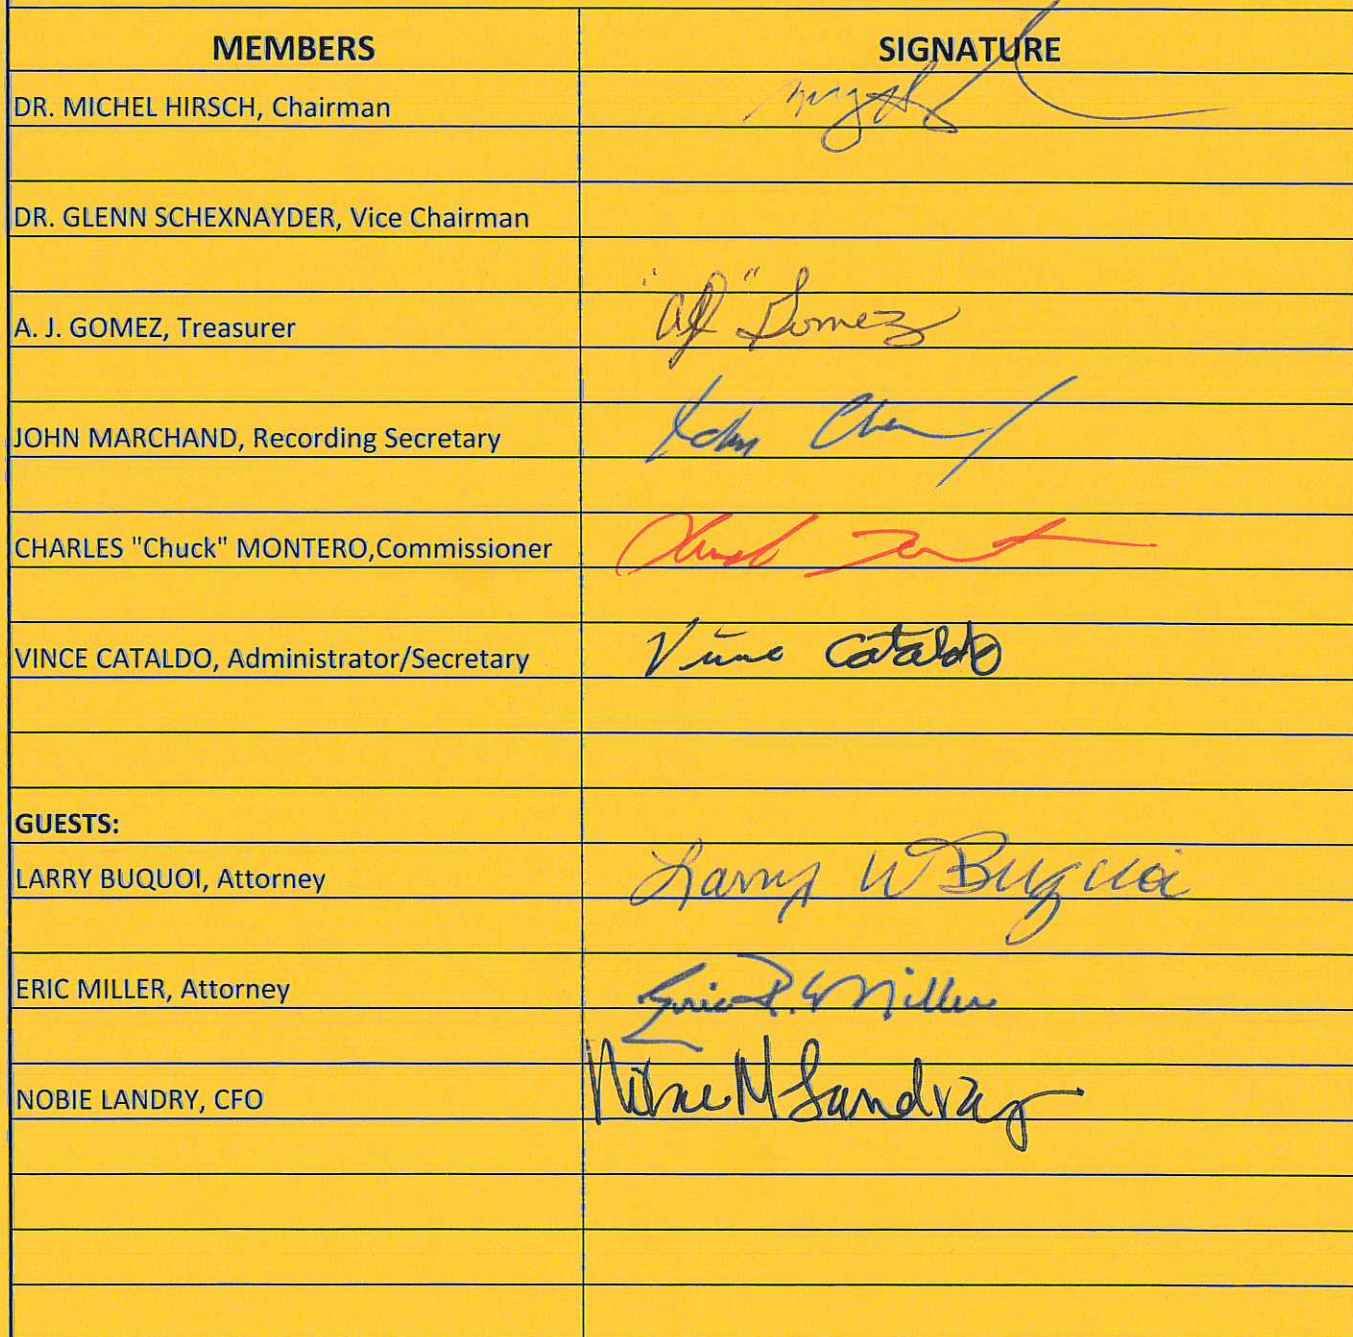 MEMBERS SIGNATURE
DR. MICHEL HIRSCH, Chairman
DR. GLENN SCHEXNAYDER, Vice Chairman
A. J. GOMEZ, Treasurer "AJ" Gomez
JOHN MARCHAND, Recording Secretary John
CHARLES "Chuck" MONTERO,Commissioner Chuck
VINCE CATALDO, Administrator/Secretary Vince Cataldo
GUESTS:
LARRY BUQUOI, Attorney Larry W Buquoi
ERIC MILLER, Attorney Eric P. Miller
NOBIE LANDRY, CFO M Landry